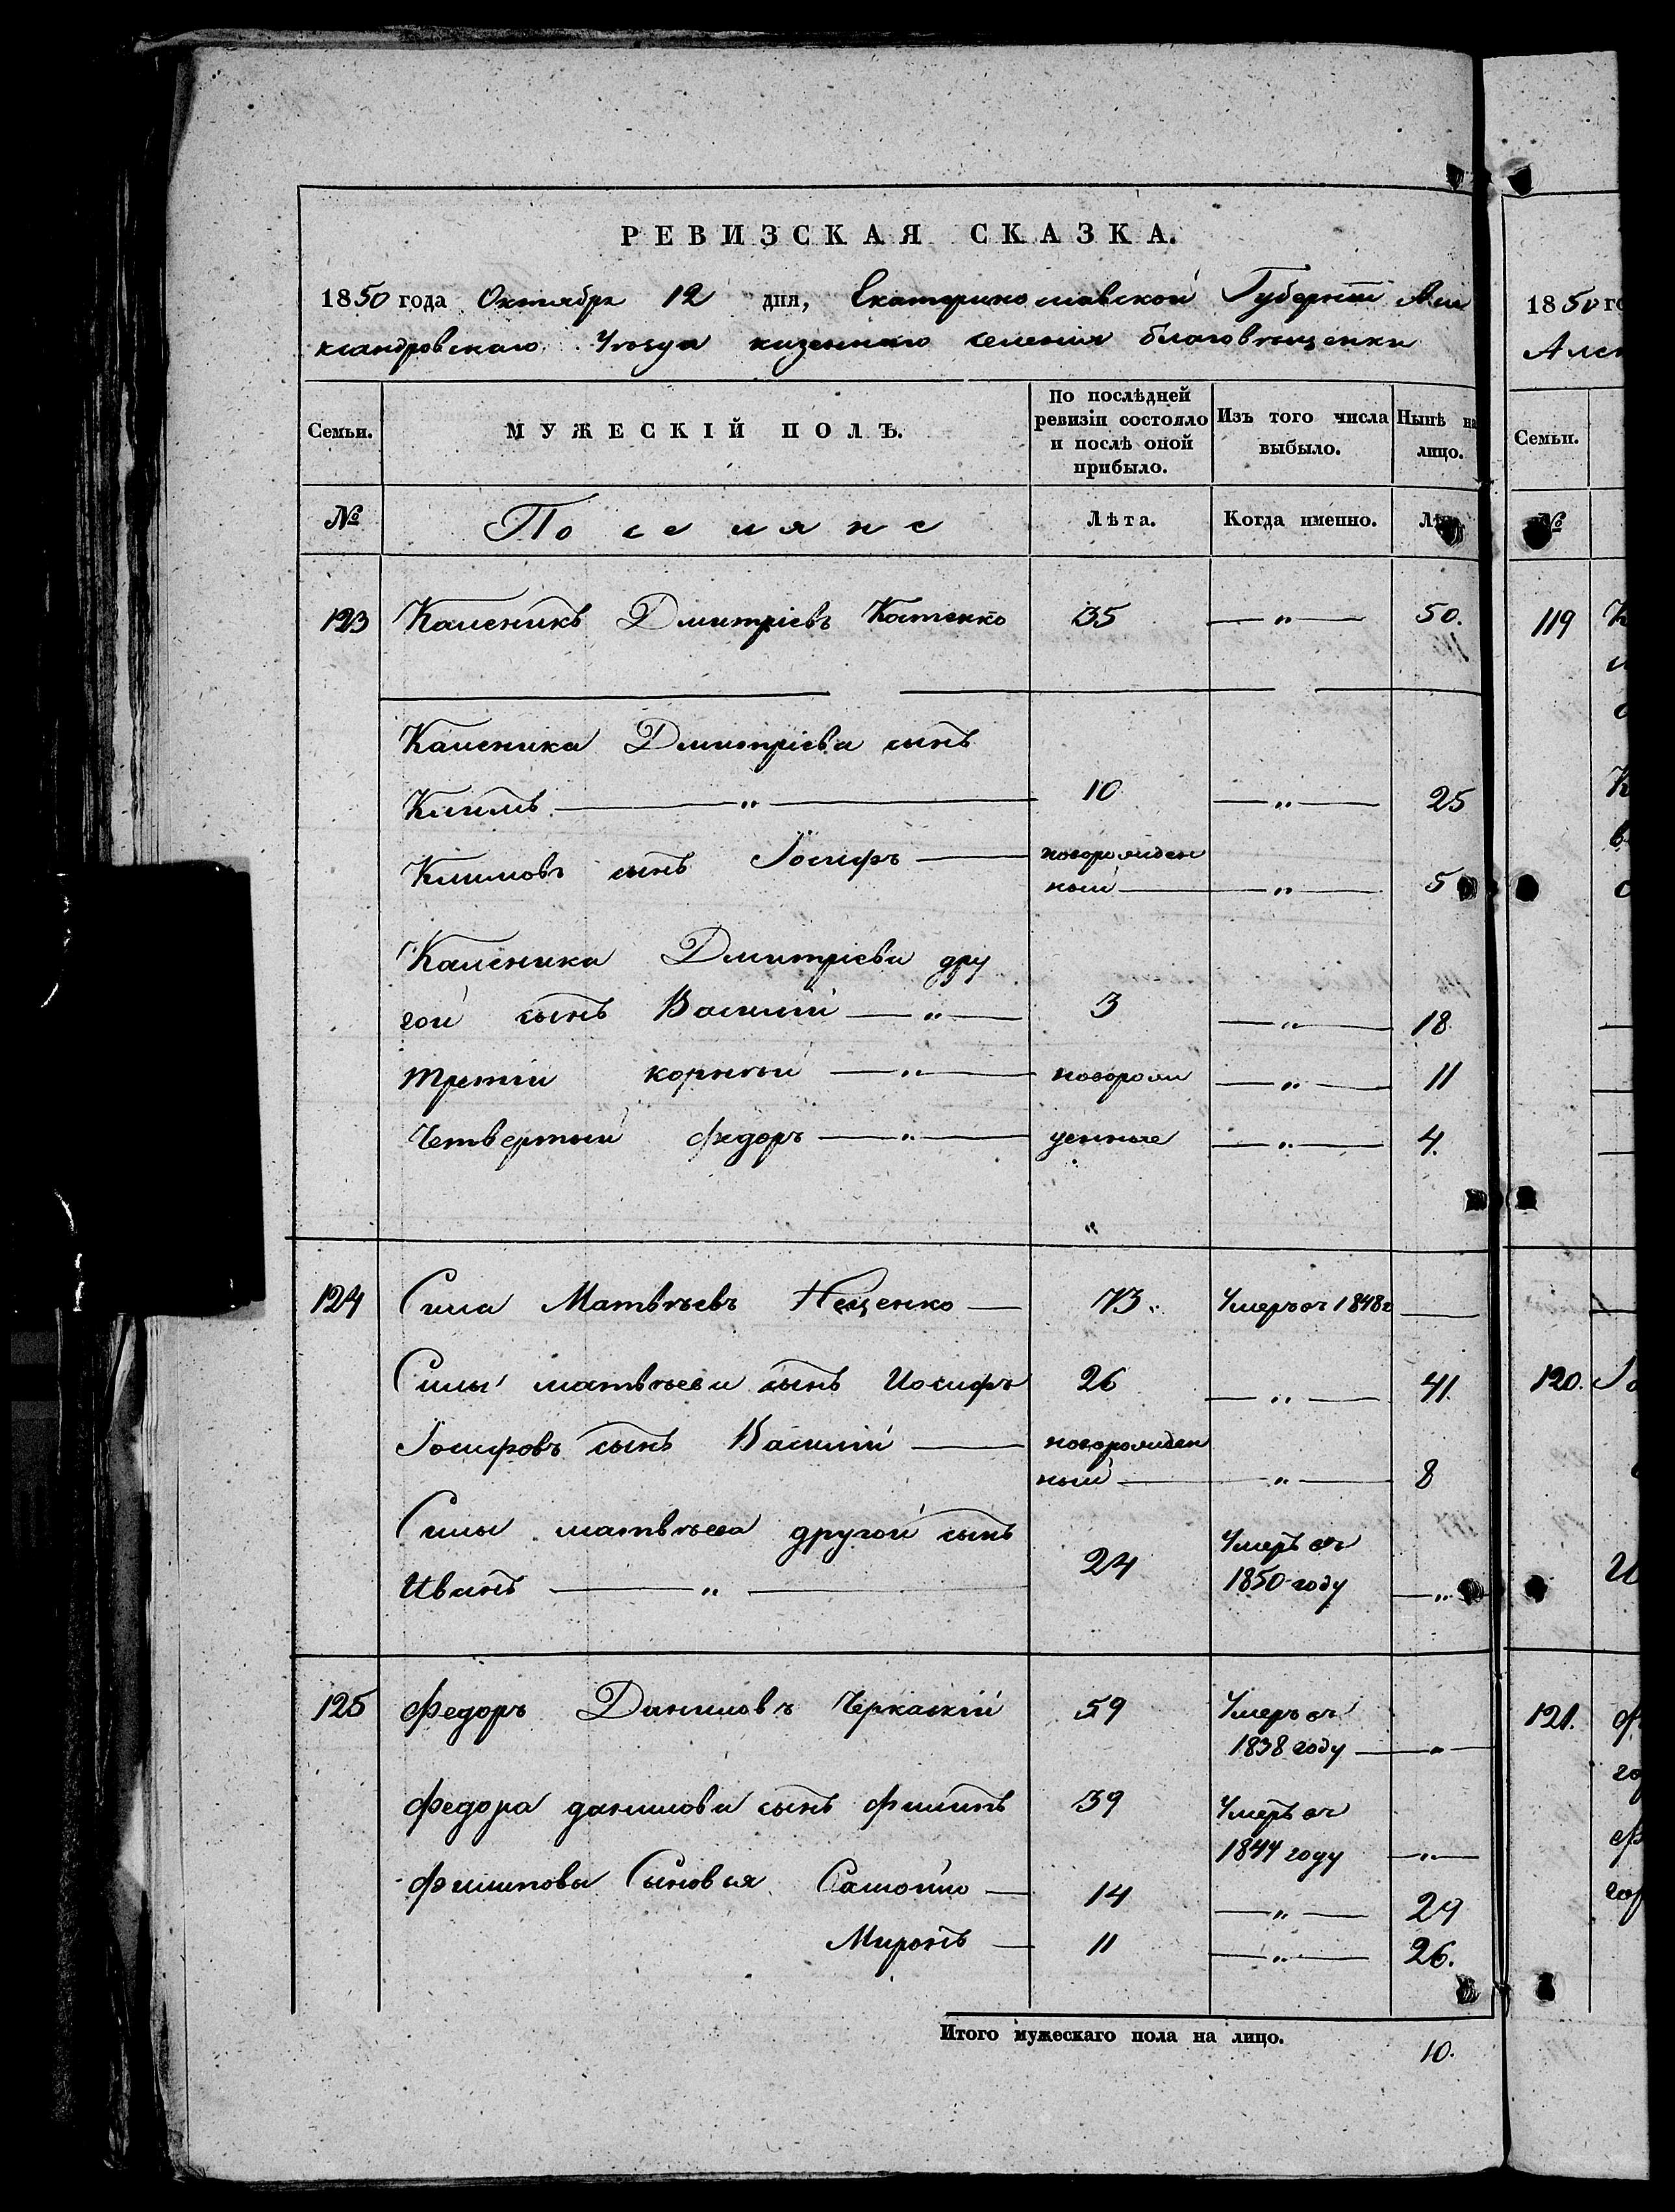 РЕВИЗСКАЯ СКАЗКА.
1850 года Октября 12 дня, Екатеринославской Губернiи Але
ксандровскаго Уѣзда казеннаго селенiя благовѣщенки
Семьи. МУЖЕСКIЙ ПОЛЪ. По послѣдней ревизiи состояло и послѣ оной прибыло. Изъ того числа выбыло. Нынѣ на лицо.
№ Поселяне Лѣта. Когда именно. Лѣта.
123 Каленикъ Дмитрiевъ Костенко 35 — " — 50.
Каленика Дмитрiева сынъ
Климъ — " — 10 — " — 25
Климовъ сынъ Iосифъ — новорожден
ный — " — 5
Каленика Дмитрiева дру
гой сынъ Василiй — " — 3 — " — 18
третiй корнѣй — " — новорож — " — 11
Четвертый федоръ — " — денные — " — 4.
"
124 Сила Матвѣевъ Нещенко — 73. Умеръ въ 1848г —
Силы матвѣева сынъ Иосифъ 26 — " — 41.
Iосифовъ сынъ Василiй — новорожден
ный — " — 8
Силы матвѣева другой сынъ Умеръ въ
Иванъ — " — 24 1850 году — " —
125 федоръ Даниловъ Черкаскiй 59 Умеръ въ
1838 году — " —
федора данилова сынъ филипъ 39 Умеръ въ
1844 году — " —
филипова Сыновья Самойло — 14 — " — 29
Миронъ — 11 — " — 26.
Итого мужескаго пола на лицо. 10.
1850 го
Алек
Семьи.
№
119
120.
121.